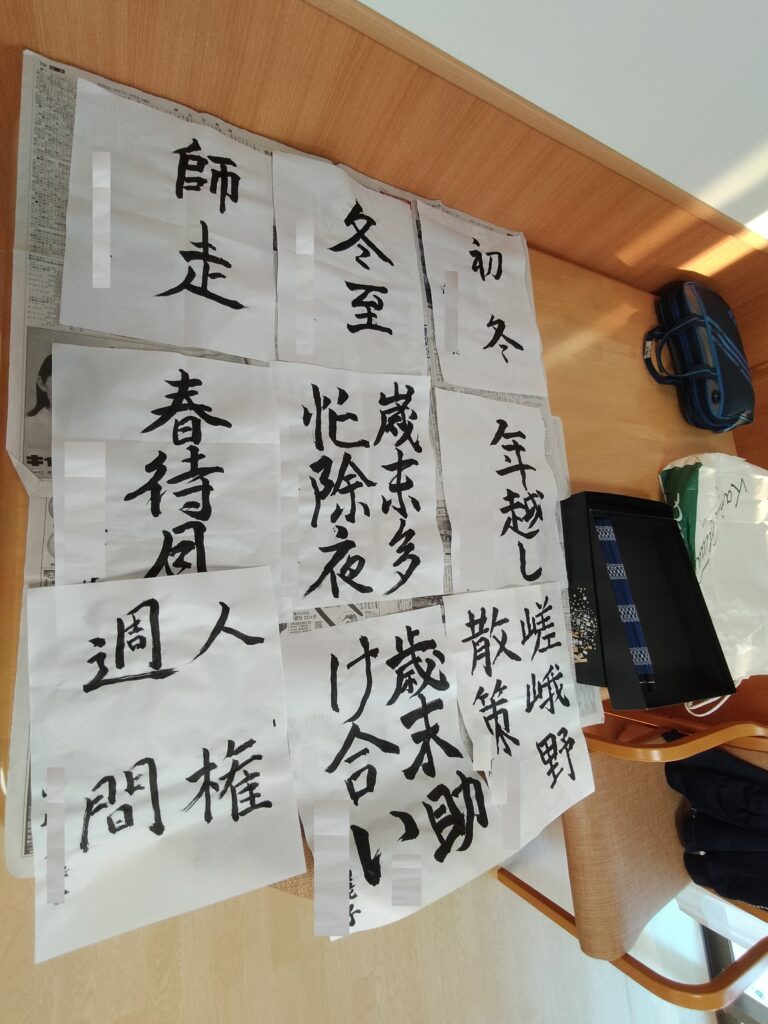 初冬
冬至
師走
年越し
歳末多
忙除夜
春待月
嵯峨野
散策
歳末助
け合い
人権
週間